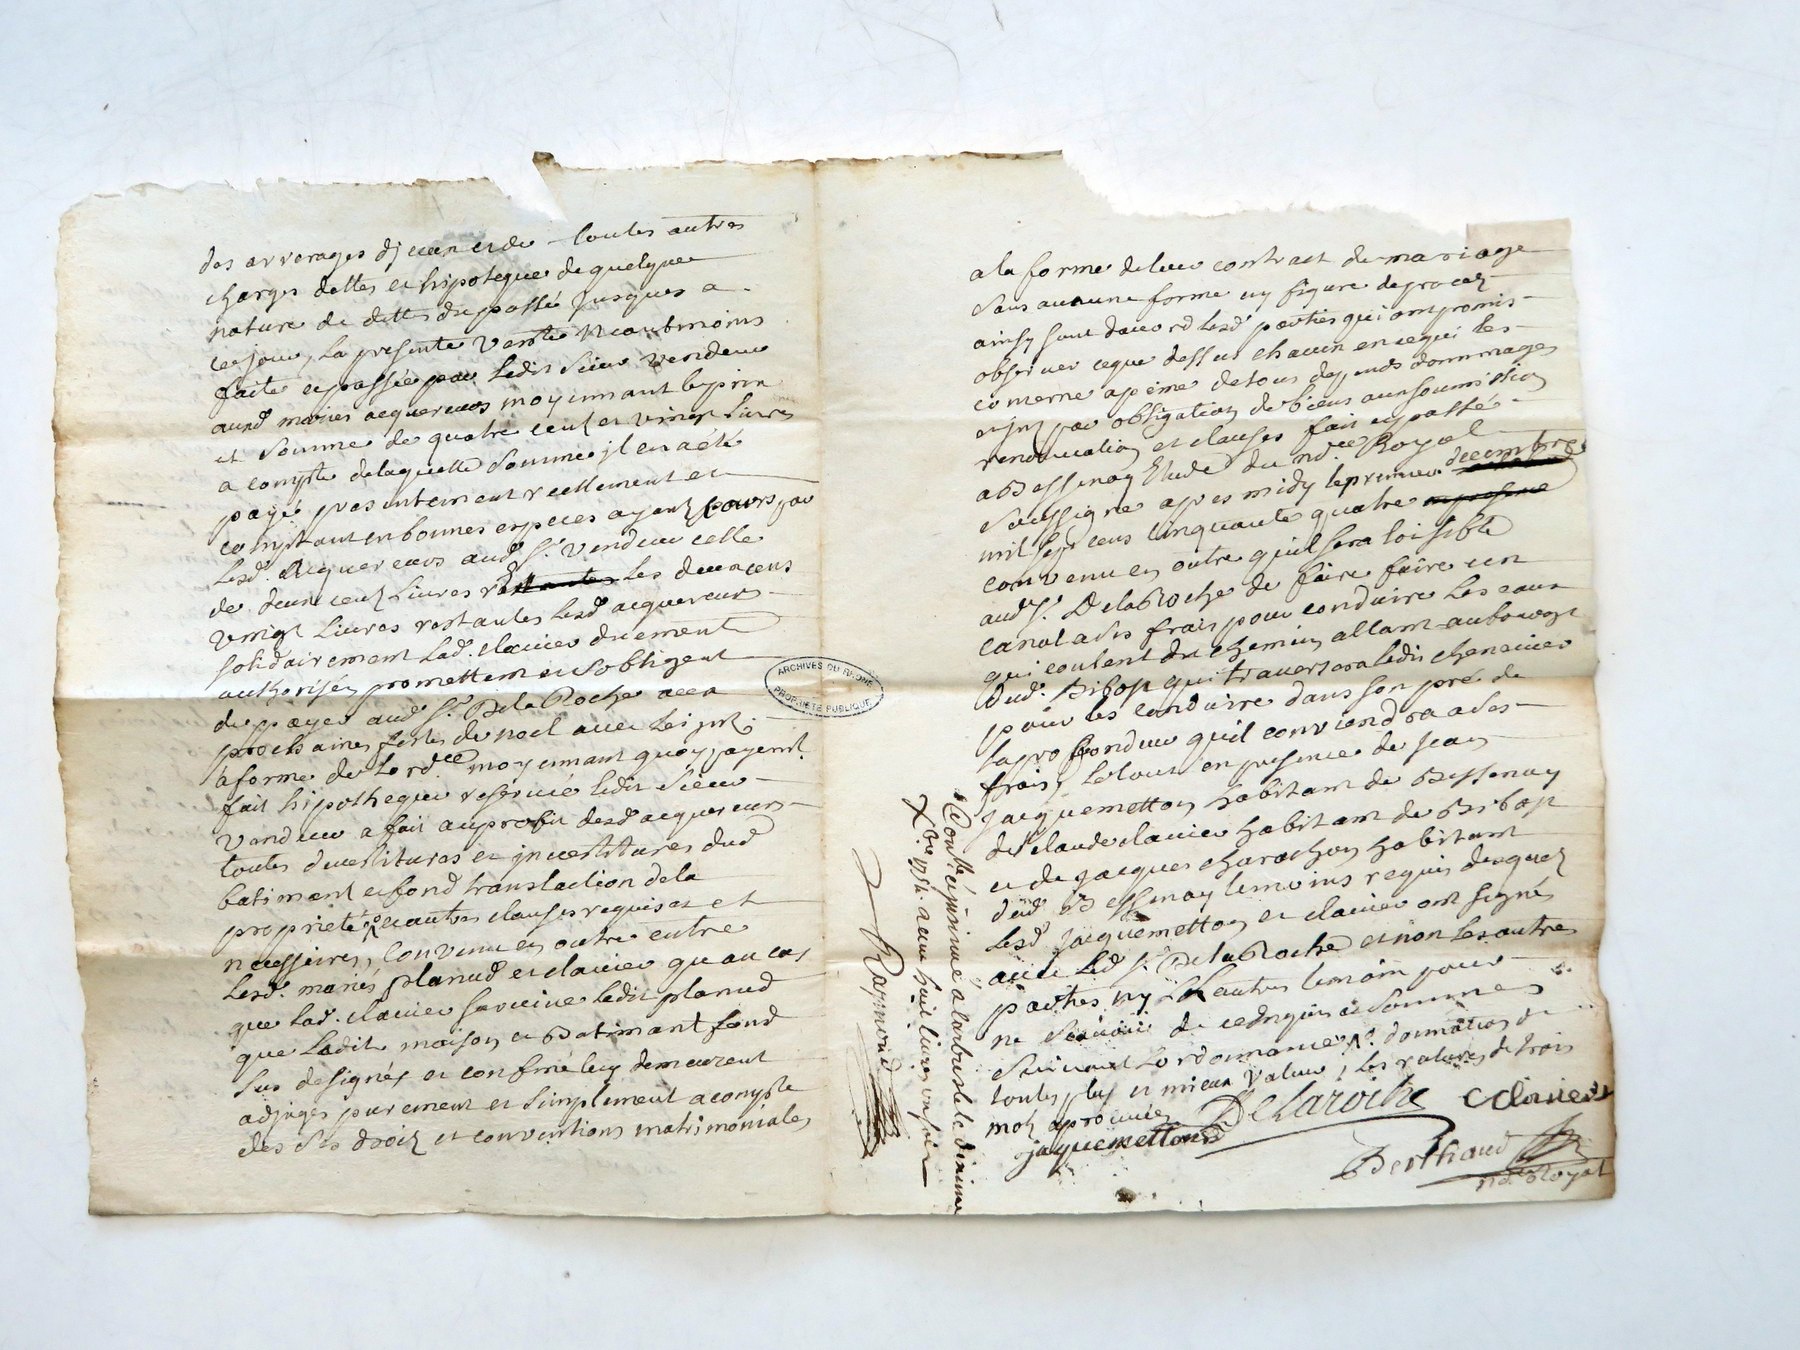 des arrerages djceux et de toutes autres
charges dettes et hipoteque de quelque
nature de dettes du passé jusques a
ce jour, La presente vente neantmoins
faite et passée par ledit sieur vendeur
auxd mariés acquereurs moyennant le prix
et somme de quatre cent et vingt livres
a compte de laquelle somme il en a été
payé presentement reellement et
comptant en bonnes especes ayant cours par
lesd. acquereurs aud. Sr. vendeur celle
de deux cent Livres les deux cens
vingt Livres restantes lesd acquereurs
solidairement Lad. claviere duement
authorisée promettent et sobligent
de payer aud Sr. De la Roche a
prochaines festes de noel avec Le jnt.
a forme de Lordce moyennant quoy, payemt.
fait hipotheque reservée ledit sieur
vendeur a fait au profit desd acquereurs
toutes devestitures et jnvestitures dud
batiment et fond translation de la
proprieté et autres clauses requises et
necessaires, convenu en outre entre
lesd. mariés planud et clavier qu'au cas
que lad. clavier survive ledit planud
que Ladite maison et Batimant fond
sus designés et confiné luy demeurent
adjugés purement et simplement a compte
des ses droitz et conventions matrimoniales
a la forme de leur contract de mariage
sans aucune forme ny figure de procez
ainsy sont daccord lesd. parties qui ont promis
observer ce que dessus chacun en ce qui les
concerne a peine de tous depends dommages
et jnt par obligation de biens aux soumission
renonciation et clauses fait et passé
a Bessenay Etude du nore. Royal
soussigné apres midy le premier decembre
mil sept cens cinquante quatre
convenu en outre quil sera loisible
aud Sr. De la Roche de faire faire un
canal a ses frais pour conduire les eaux
qui coulent du chemin allant au bourg
dud. Bibost qui traversera ledit chenevier
pour les conduire dans son pré de
la profondeur quil conviendra a ses
frais, le tout en presence de jean
jacquemetton habitant de Bessenay
de claude clavier habitant de Bibost
et de jacques charachon habitant
dud Bessenay temoins requis desquels
lesd jacquemetton et clavier ont signé
avec led Sr. De la Roche et non les autres
parties ny Lautre temoin pour
ne scavoir de ce enquis et sommes
suivant Lordonnance donnation de
toutes plus et mieux value, les ratures de trois
mots aprouvées
jaquemetton Delaroche Clavier
Berthaud
nore Royal
Controllé et jnsinué a larbresle le dixieme
Xbre 1754. a cu huit livres un sol
Raymond
ARCHIVES DU RHONE
PROPRIÉTÉ PUBLIQUE